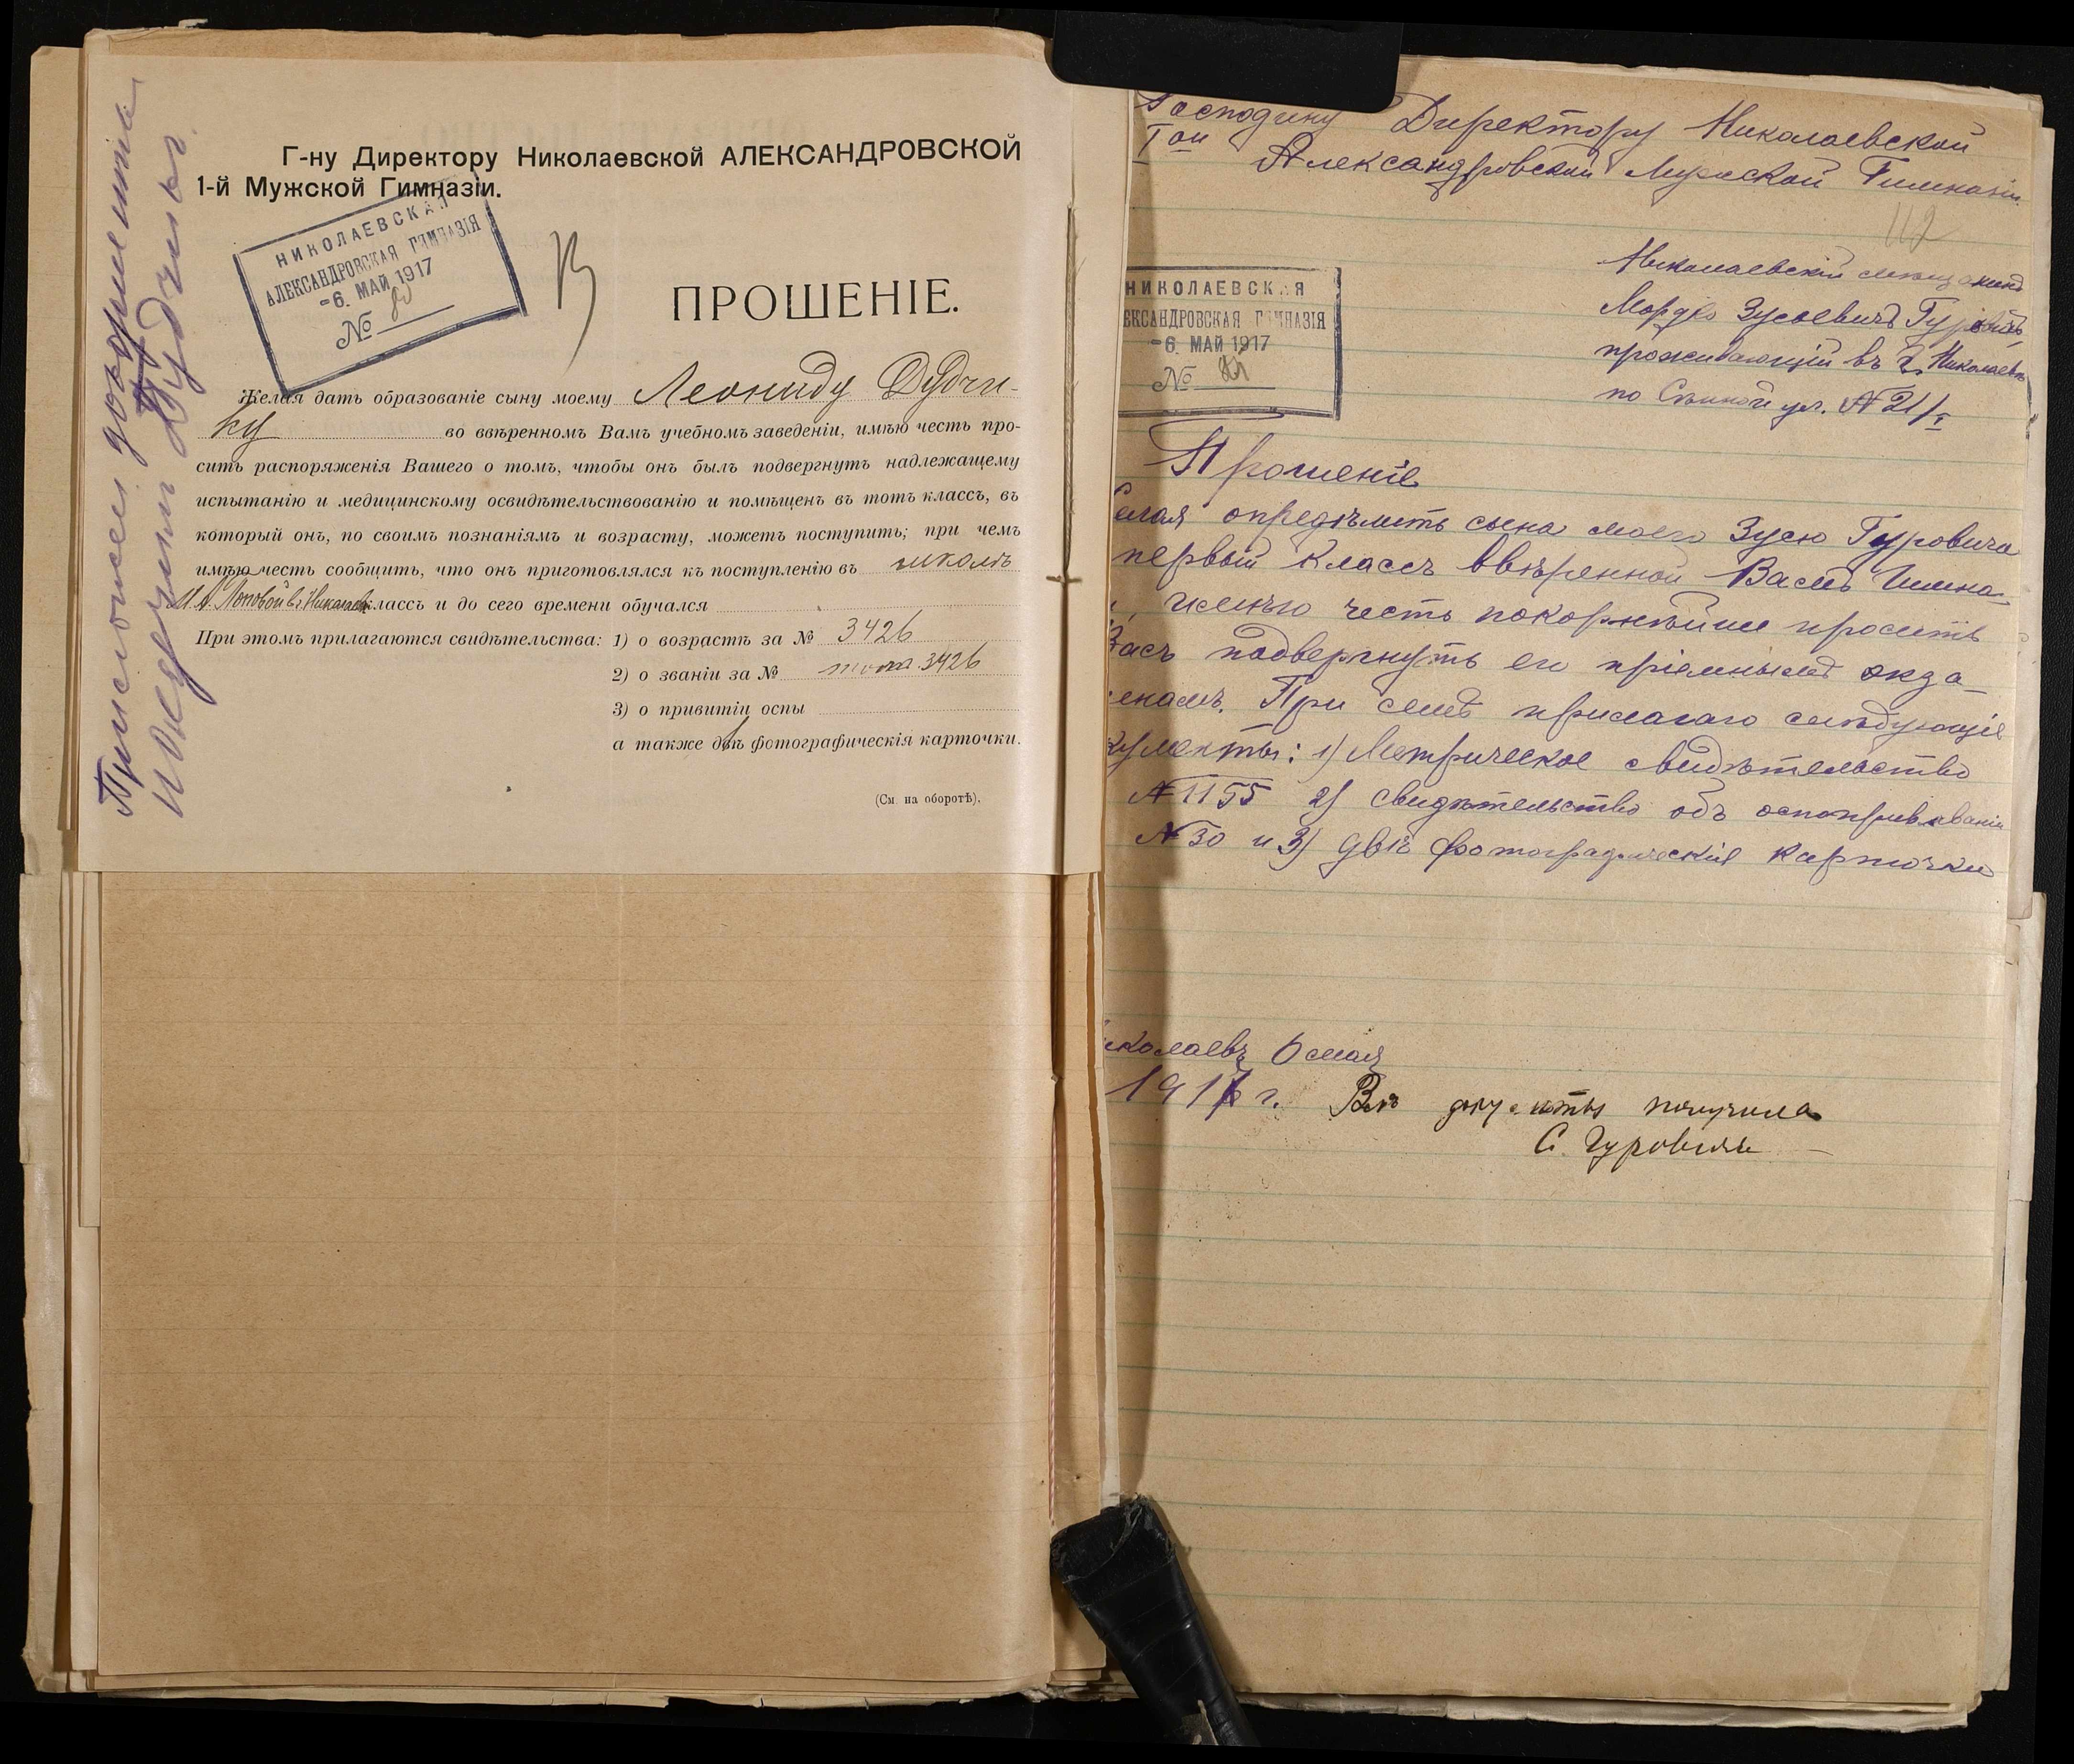 Г-ну Директору Николаевской АЛЕКСАНДРОВСКОЙ
1-й Мужской Гимназіи.
НИКОЛАЕВСКАЯ
АЛЕКСАНДРОВСКАЯ ГИМНАЗІЯ
-6. МАЙ 1917
№
ПРОШЕНІЕ.
Желая дать образованіе сыну моему Леониду Дудчи-
ку во ввѣренномъ Вамъ учебномъ заведеніи, имѣю честь про-
сить распоряженія Вашего о томъ, чтобы онъ былъ подвергнутъ надлежащему
испытанію и медицинскому освидѣтельствованію и помѣщенъ въ тотъ классъ, въ
который онъ, по своимъ познаніямъ и возрасту, можетъ поступить; при чемъ
имѣю честь сообщить, что онъ приготовлялся къ поступленію въ школѣ
Поповой въ Николаевѣ классъ и до сего времени обучался
При этомъ прилагаются свидѣтельства: 1) о возрастѣ за № 3426
2) о званіи за № тотъ 3426
3) о привитіи оспы
а также двѣ фотографическія карточки.
(См. на оборотѣ).
Дудчикъ
Господину Директору Николаевской
Iой Александровской Мужской Гимназіи
112
Николаевскій мѣщанинъ
Мордко Зусевичъ Гуровичъ
проживающій въ г. Николаевѣ
по Сѣнной ул. № 21/I
НИКОЛАЕВСКАЯ
ЕКСАНДРОВСКАЯ ГИМНАЗІЯ
-6. МАЙ 1917
№
Прошеніе
елая опредѣлить сына моего Зусю Гуровича
первый классъ ввѣренной Вамъ Гимна-
имѣю честь покорнѣйше просить
Васъ подвергнуть его пріемнымъ экза-
менамъ. При семъ прилагаю слѣдующіе
кументы: 1) Метрическое свидѣтельство
№ 1155 2) свидѣтельство объ оспопрививаніи
№ 30 и 3) двѣ фотографическія карточки
иколаевъ 6 мая
1917 г. Всѣ документы получила
С. Гуровичъ